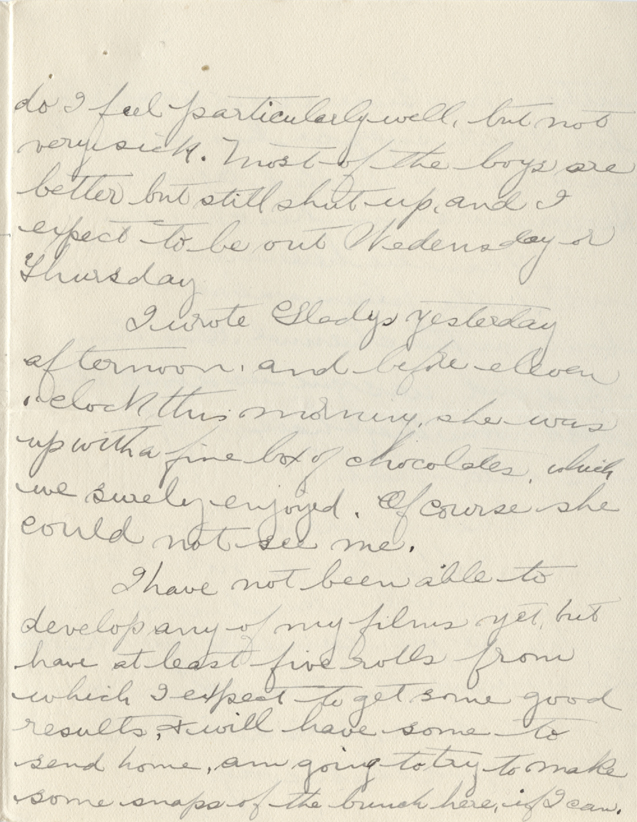 do I feel particularly well, but not
very sick. Most of the boys are
better but still shut up, and I
expect to be out Wedensday or
Thursday
I wrote Gladys yesterday
afternoon, and before eleven
o,clock this morning, she was
up with a fine box of chocolates, which
we surely enjoyed. Of course she
could not see me.
I have not been able to
develop any of my films yet, but
have at least five rolls from
which I expect to get some good
results, & will have some to
send home, am going to try to make
some snaps of the bunch here, if I can.